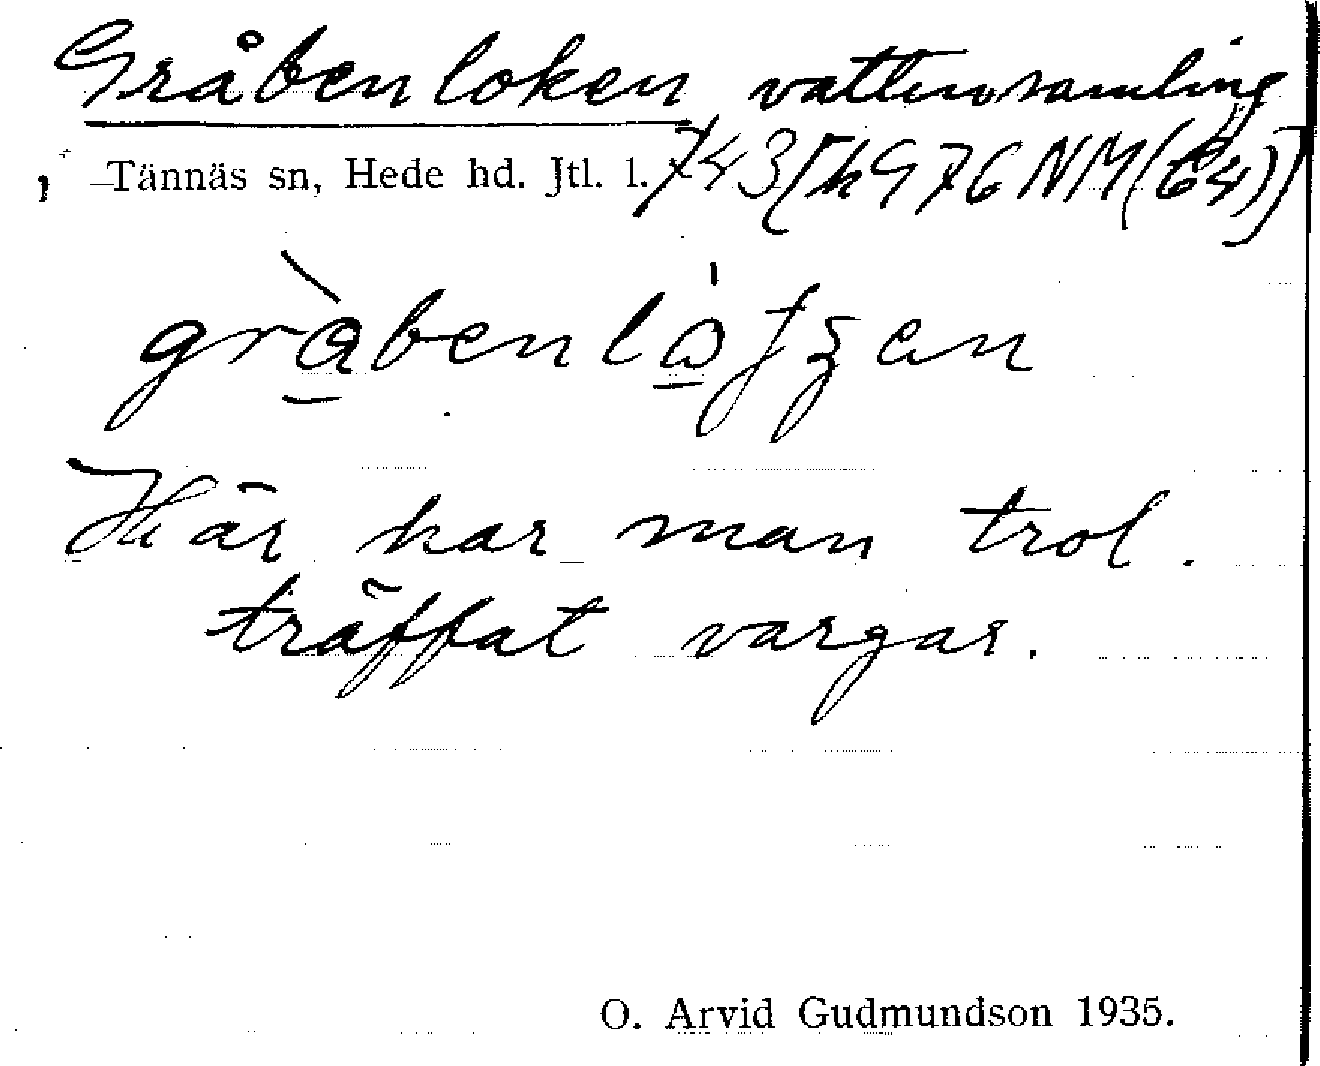 Gråbenloken vattensamling
Tännäs sn, Hede hd. Jtl. l. 743 [k976NM(64)]
gràbenlo̱ʃʒen
Här har man trol.
träffat vargar.
O. Arvid Gudmundson 1935.